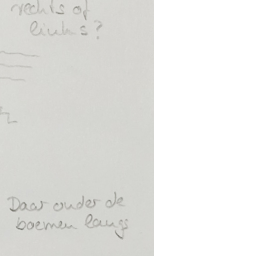 rechts of
links?
Daar onder de
boemen langs